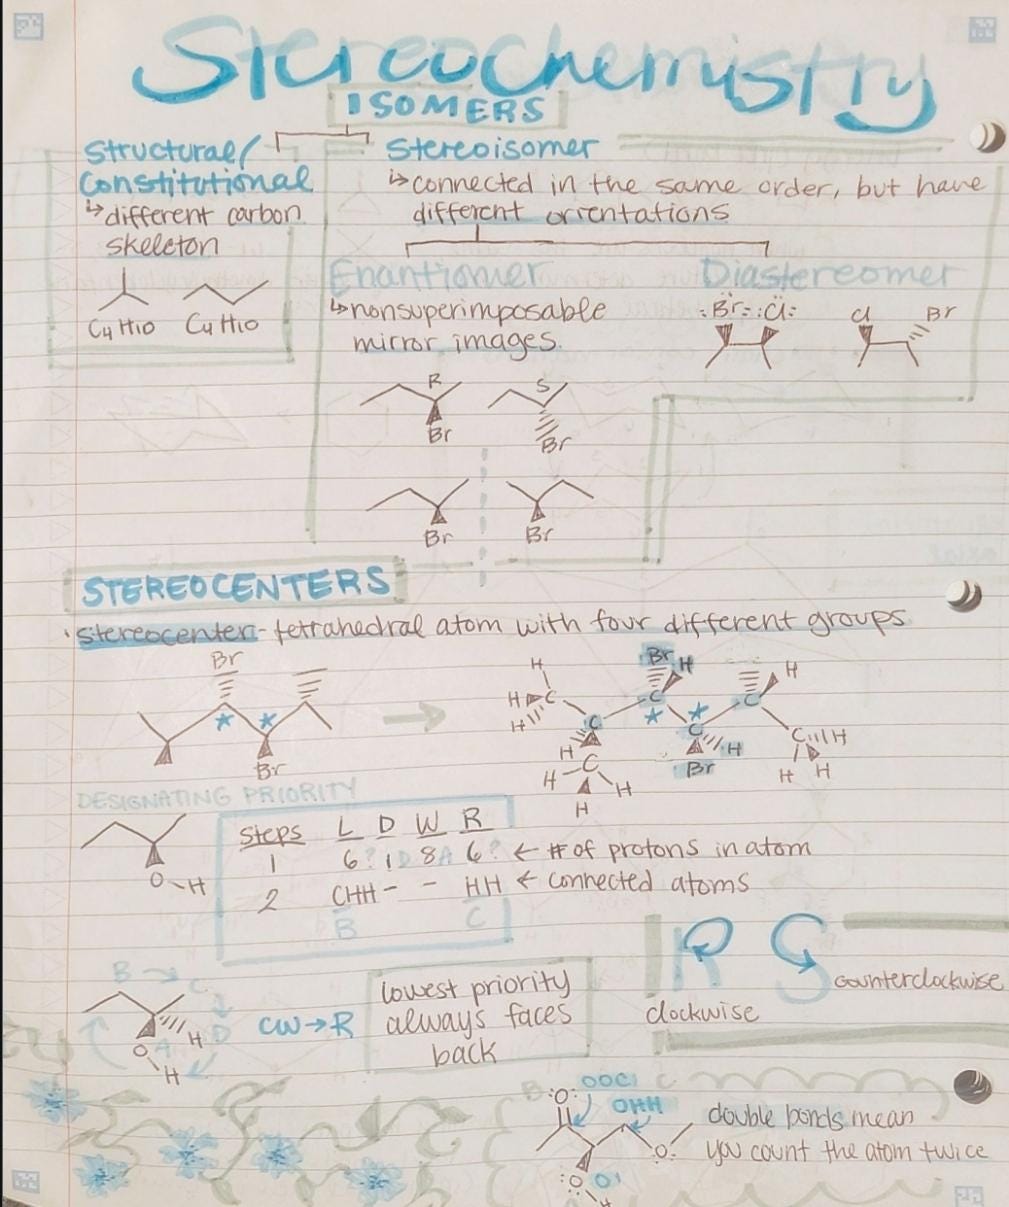 Stereochemistry
ISOMERS
Structural/
Constitutional
↳different carbon
skeleton
C4H10 C4H10
Stereoisomer
↳connected in the same order, but have
different orientations
Enantiomer
↳nonsuperimposable
mirror images.
R S
Br Br
Br Br
Diastereomer
:Br: :Cl: Cl Br
STEREOCENTERS
·stereocenter- tetrahedral atom with four different groups
Br
* *
Br
H Br H H
H C C C
H C * * C H
H C Br H C H
H H H H
H
DESIGNATING PRIORITY
O-H
Steps L D W R
1 6? 1D 8A 6? ← # of protons in atom
2 CHH - - HH ← connected atoms
B C
R S
clockwise
counterclockwise
B C
A D
O H
H
CW→R
lowest priority
always faces
back
B :O: OOC C
OHH
:O: O
H
double bonds mean
you count the atom twice